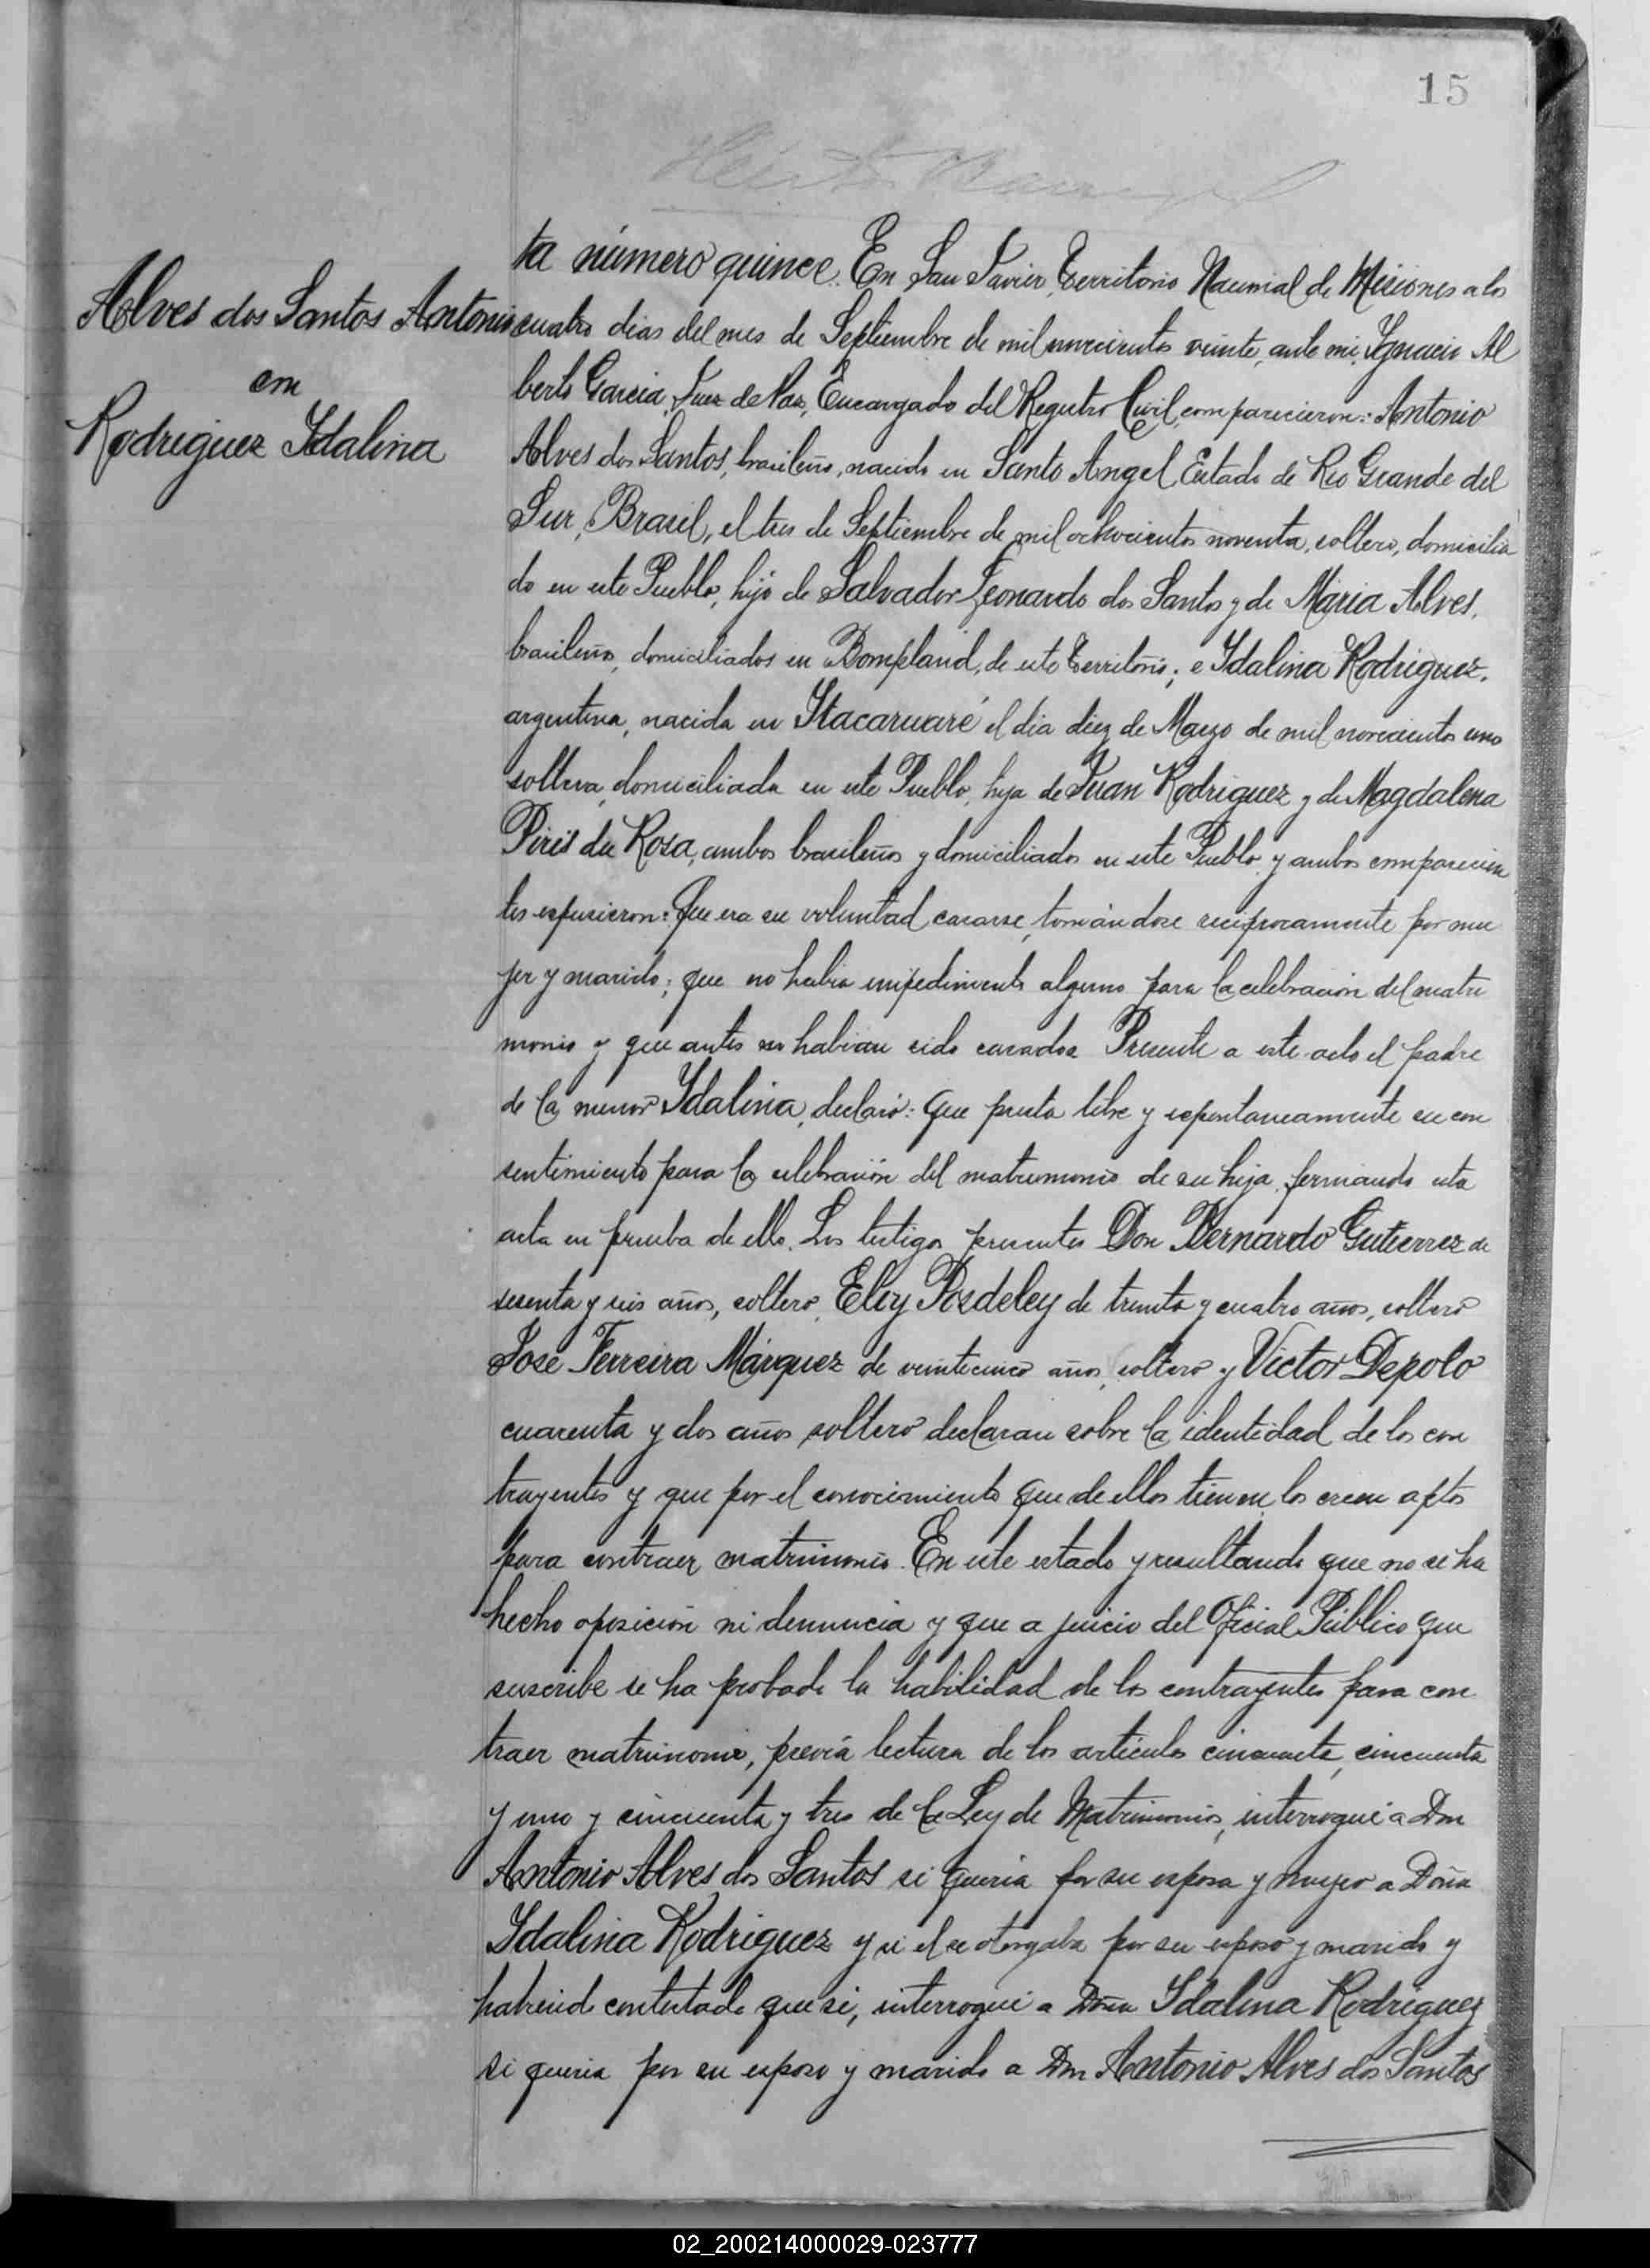 15
Alves dos Santos Antonio
con
Rodriguez Idalina
ta número quince. En San Javier, Territorio Nacional de Misiones a los
cuatro dias del mes de Septiembre de mil novecientos veinte, ante mi, Ygnacio Al
berto Garcia, Juez de Paz, Encargado del Registro Civil, comparecieron: Antonio
Alves dos Santos, brasileño, nacido en Santo Angel, Estado de Rio Grande del
Sur, Brasil, el tres de Septiembre de mil ochocientos noventa, soltero, domicilia
do en este Pueblo, hijo de Salvador Leonardo dos Santos y de Maria Alves,
brasileños, domiciliados en Bompland, de este Territorio; e Ydalina Rodriguez,
argentina, nacida en Itacaruaré el dia diez de Marzo de mil novecientos uno
soltera, domiciliada en este Pueblo, hija de Juan Rodriguez y de Magdalena
Piris da Rosa, ambos brasileños y domiciliados en este Pueblo, y ambos comparecien
tes expusieron: Que era su voluntad casarse, tomándose reciprocamente por mu
jer y marido; que no habia impedimento alguno para la celebración del matri
monio y que antes no habian sido casados. Presente a este acto el padre
de la menor Ydalina, declaró: Que presta libre y espontaneamente su con
sentimiento para la celebración del matrimonio de su hija, firmando esta
acta en prueba de ello. Los testigos presentes Don Bernardo Gutierrez de
sesenta y seis años, soltero, Eloy Posdeley de treinta y cuatro años, soltero
José Ferreira Márquez de veinticinco años, soltero y Victor Depolo
cuarenta y dos años soltero declaran sobre la identidad de los con
trayentes y que por el conocimiento que de ellos tienen, los creen aptos
para contraer matrimonio. En este estado y resultando que no se ha
hecho oposición ni denuncia y que a juicio del Oficial Público que
suscribe se ha probado la habilidad de los contrayentes para con
traer matrimonio, previa lectura de los articulos cincuenta, cincuenta
y uno y cincuenta y tres de la Ley de Matrimonio, interrogué a Don
Antonio Alves dos Santos si queria por su esposa y mujer a Doña
Ydalina Rodriguez y si el se otorgaba por su esposo y marido y
habiendo contestado que si, interrogué a Doña Ydalina Rodriguez
si queria por su esposo y marido a Don Antonio Alves dos Santos
02_200214000029-023777